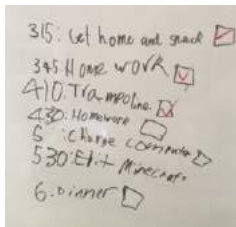 315: Get home and snack
345 Home work
410: Trampoline
430: Homework
5 : Charge computer
530: Edit Minecraft
6. Dinner